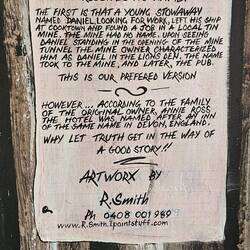 THE FIRST IS THAT A YOUNG STOWAWAY
NAMED DANIEL, LOOKING FOR WORK, LEFT HIS SHIP
AT COOKTOWN AND FOUND A JOB IN A LOCAL TIN
MINE. THE MINE HAD NO NAME. UPON SEEING
DANIEL STANDING IN THE OPENING OF THE MINE
TUNNEL THE MINE OWNER CHARACTERIZED
HIM AS DANIEL IN THE LIONS DEN. THE NAME
TOOK TO THE MINE, AND LATER, THE PUB.
THIS IS OUR PREFERED VERSION
HOWEVER... ACCORDING TO THE FAMILY
OF THE ORIGINAL OWNER, ANNIE ROSS,
THE HOTEL WAS NAMED AFTER AN INN
OF THE SAME NAME IN DEVON, ENGLAND.
WHY LET TRUTH GET IN THE WAY OF
A GOOD STORY!!
ARTWORX BY
R. Smith
Ph 0408 001 989
www.R.Smith.Ipaintstuff.com